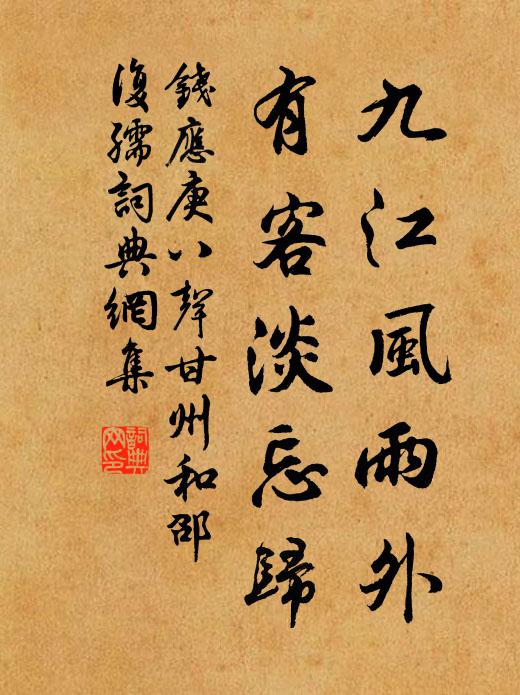 九江風雨外
有客淡忘歸
錢應庚八聲甘州和邵
復孺詞典網集
詞典
网印